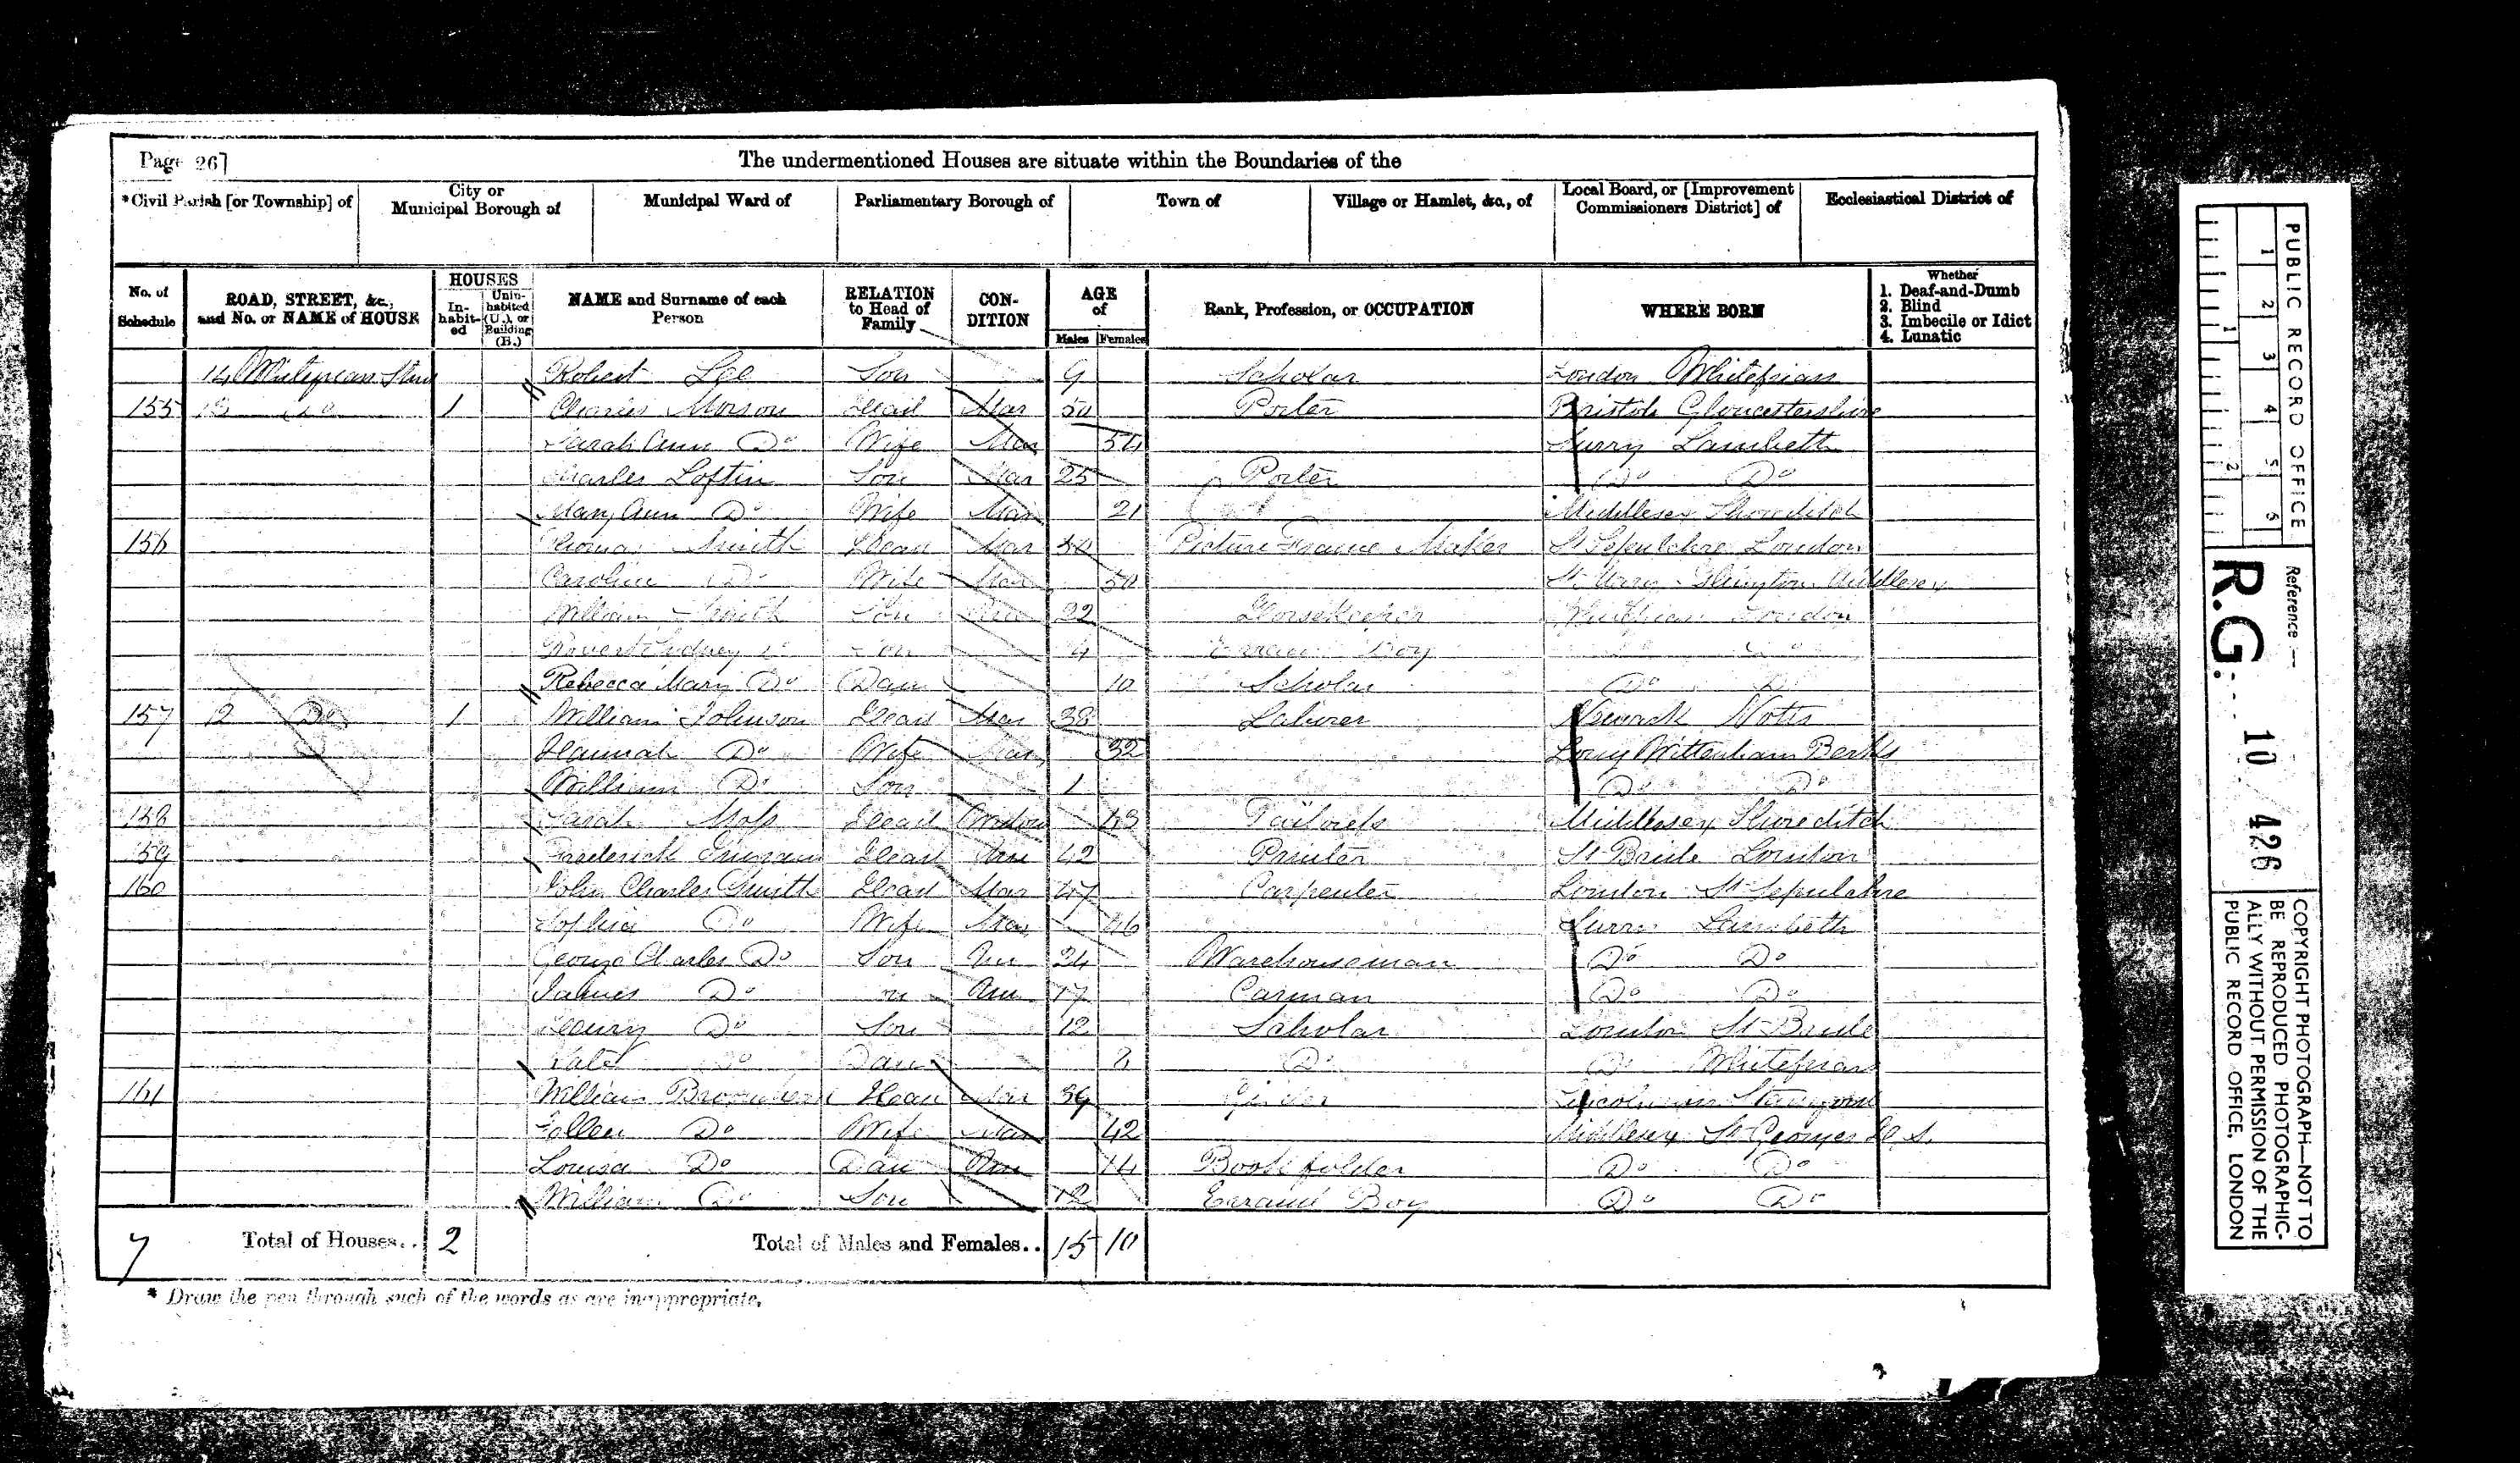 Page 26]
The undermentioned Houses are situate within the Boundaries of the
*Civil Parish [or Township] of
City or Municipal Borough of
Municipal Ward of
Parliamentary Borough of
Town of
Village or Hamlet, &c., of
Local Board, or [Improvement Commissioners District] of
Ecclesiastical District of
No. of Schedule
ROAD, STREET, &c., and No. or NAME of HOUSE
HOUSES
In-habit-ed
Unin-habited (U.), or Building (B.)
NAME and Surname of each Person
RELATION to Head of Family
CON-DITION
AGE of
Males Females
Rank, Profession, or OCCUPATION
WHERE BORN
Whether
1. Deaf-and-Dumb
2. Blind
3. Imbecile or Idiot
4. Lunatic
14 Robert Lee Son 9 Scholar London Whitefriars
155 1 Charles Morson Head Mar 50 Porter Bristol Gloucestershire
Sarah Ann Do Wife Mar 54 Surry Lambeth
Charles Loftin Son Mar 25 Porter Do Do
Mary Ann Do Wife Mar 21 Middlesex Shoreditch
156 Thomas Smith Head Mar Picture Frame Maker St Sepulchre London
Caroline Do Wife Mar 50 Islington Middlesex
William Smith Son 22 Horsekeeper London
Sidney Son Errand Boy Do
Rebecca Mary Do Daur 10 Scholar Do Do
157 12 Do 1 William Johnson Head Mar 38 Laborer Newark Notts
Hannah Do Wife Mar 32 Long Wittenham Berks
William Do Son 1 Do Do
158 Sarah Moss Head Widow 43 Tailoress Middlesex Shoreditch
159 Frederick Head Unm 42 Printer St Bride London
160 John Charles Smith Head Mar 47 Carpenter London St Sepulchre
Sophia Do Wife Mar 46 Surry Lambeth
George Charles Do Son Un 24 Warehouseman Do Do
James Do Unm 17 Carman Do Do
Henry Do Son 12 Scholar London St Bride
Kate Do Dau Do Do Whitefriars
161 William Head Mar 39 Lincoln Stamford
Ellen Do Wife Mar 42 Middlesex St Georges
Louisa Do Dau Unm 14 Bookfolder Do Do
William Do Son 12 Errand Boy Do Do
7 Total of Houses.. 2
Total of Males and Females.. 15 10
* Draw the pen through such of the words as are inappropriate.
PUBLIC RECORD OFFICE
1 2 3 4 5 6
1 2
Reference:—
R.G. 10 426
COPYRIGHT PHOTOGRAPH—NOT TO BE REPRODUCED PHOTOGRAPHIC-ALLY WITHOUT PERMISSION OF THE PUBLIC RECORD OFFICE, LONDON